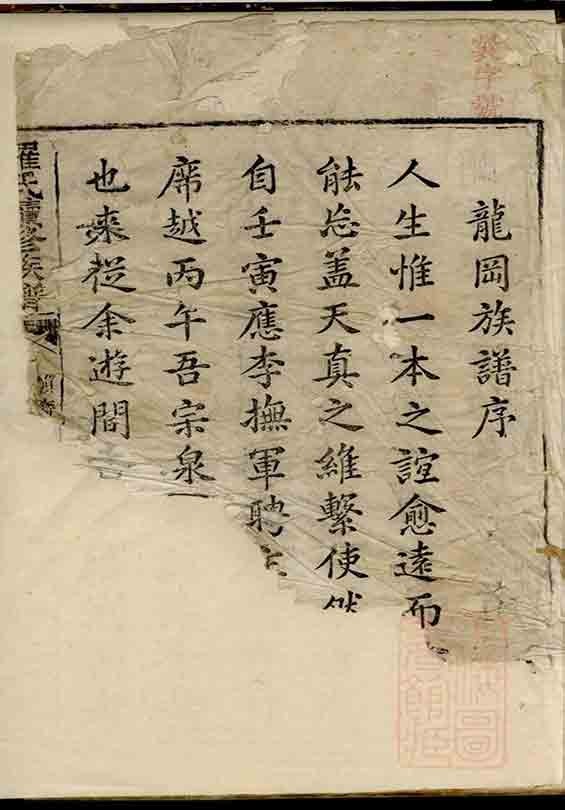 龍岡族譜序
人生惟一本之誼愈遠而
能忘蓋天真之維繫使然
自壬寅應李撫軍聘
席越丙午吾宗泉
也來從余遊間
羅氏續修族譜